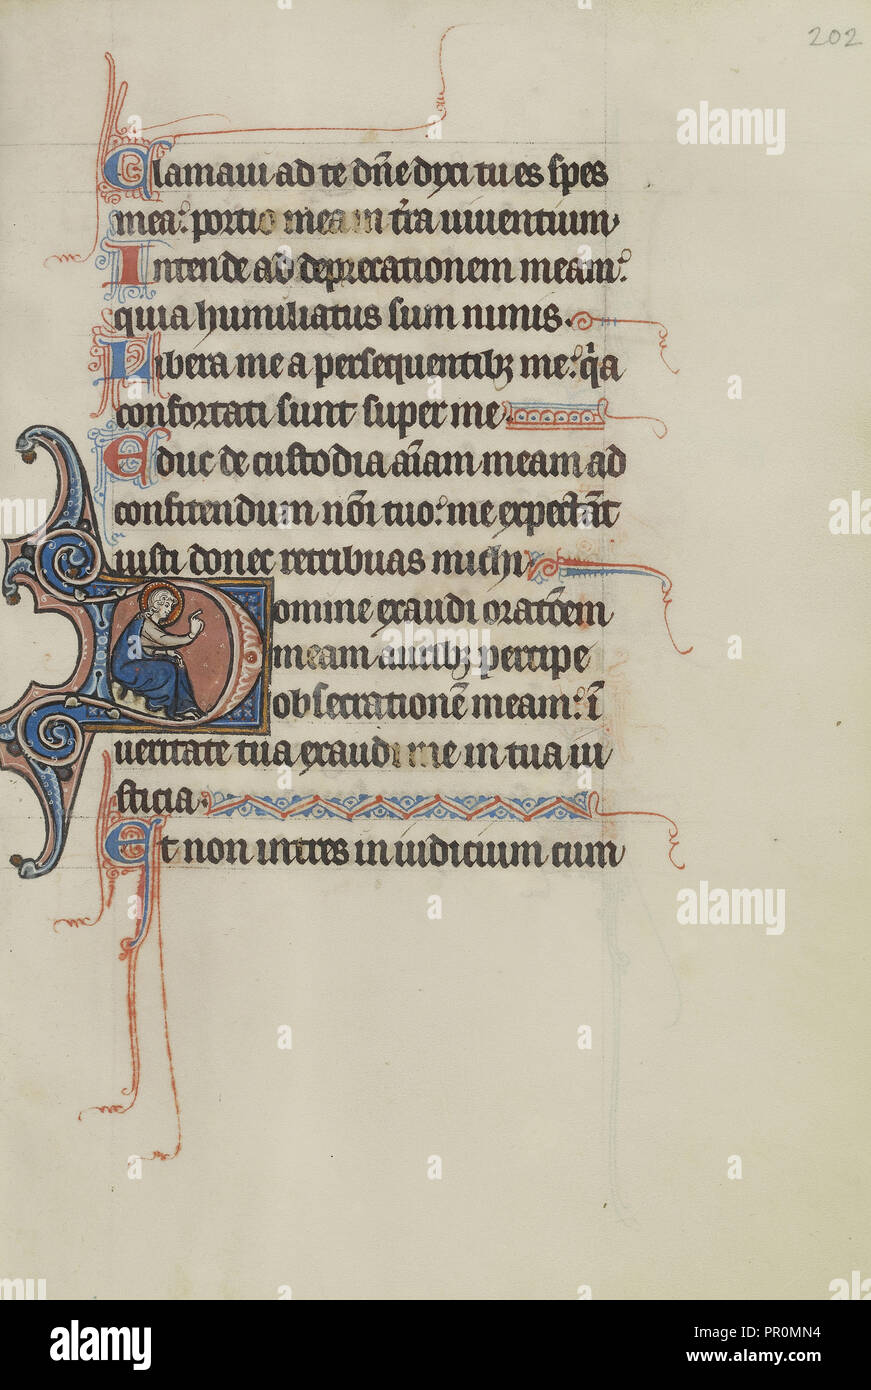 202
Clamaui ad te dñe dyxi tu es spes
mea: portio mea in t̃ra uiuentium
Intende ad deprecationem meam:
quia humiliatus sum nimis.
Libera me a persequentibꝫ me: q̃a
confortati sunt super me.
Educ de custodia aĩam meam ad
confitendum nõi tuo: me expectãt
iusti donec retribuas michi.
Domine exaudi oratõem
meam auribꝫ percipe
obsecrationẽ meam: ĩ
ueritate tua exaudi me in tua iu
sticia.
Et non intres in iudicium cum
alamy
a
alamy
Image ID: PR0MN4
www.alamy.com